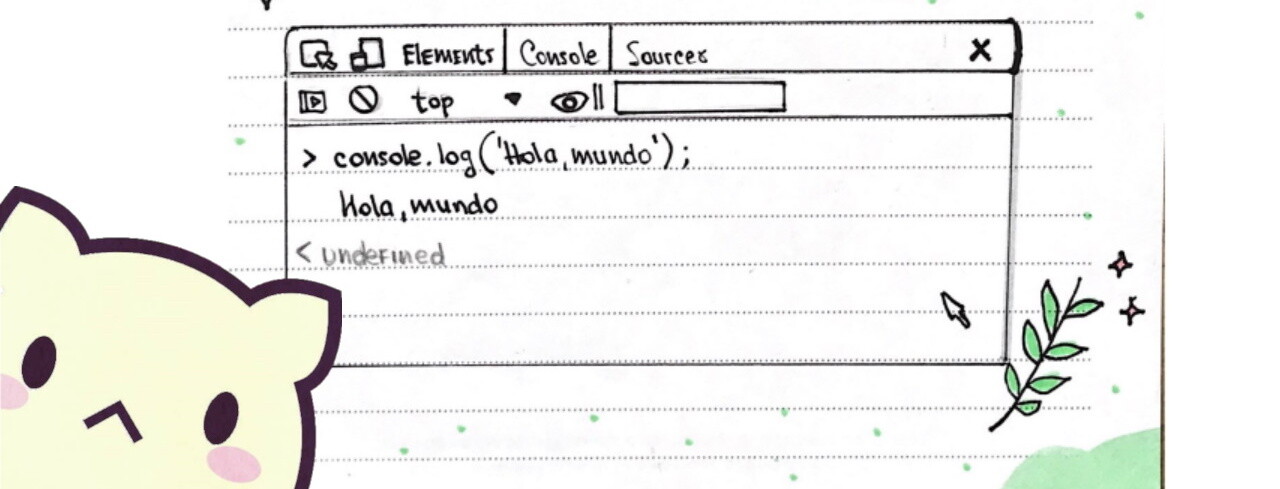 Elements Console Sources
top
> console.log('Hola, mundo');
Hola, mundo
< undefined